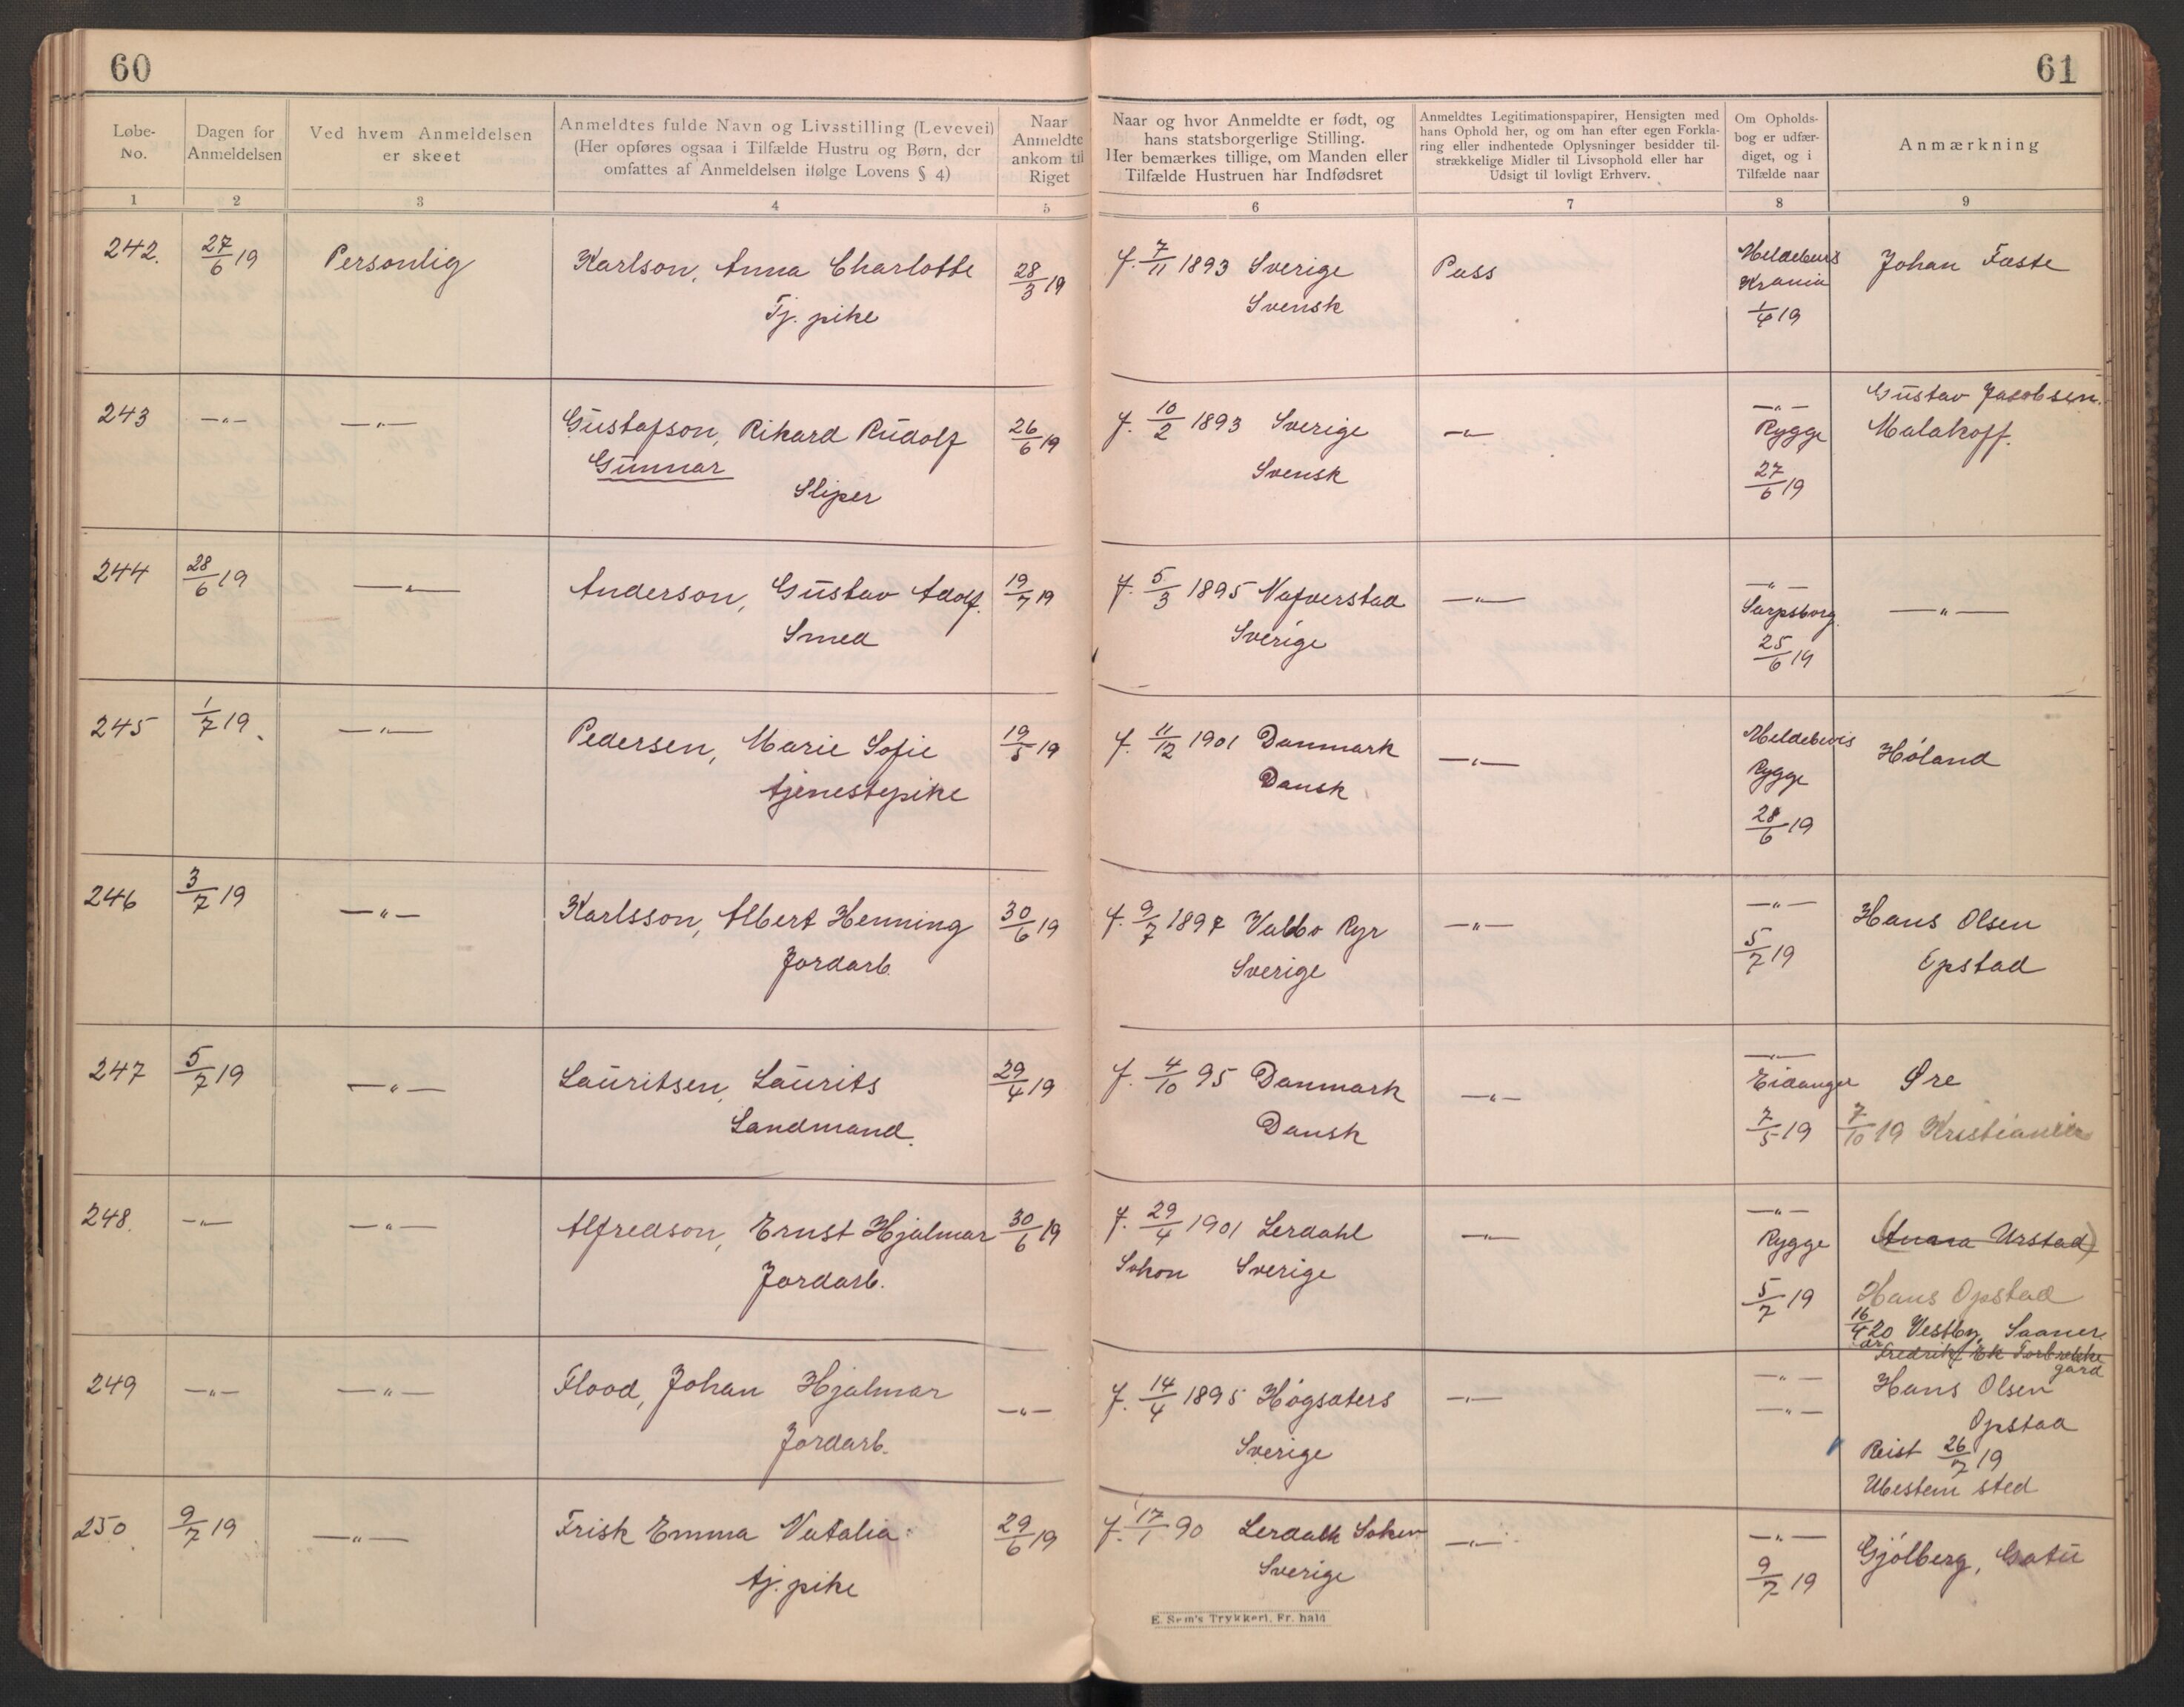 60
61
Løbe-
No.
Dagen for
Anmeldelsen
Ved hvem Anmeldelsen
er skeet
Anmeldtes fulde Navn og Livsstilling (Levevei)
(Her opføres ogsaa i Tilfælde Hustru og Børn, der
omfattes af Anmeldelsen ifølge Lovens § 4)
Naar
Anmeldte
ankom til
Riget
Naar og hvor Anmeldte er født, og
hans statsborgerlige Stilling.
Her bemærkes tillige, om Manden eller
Tilfælde Hustruen har Indfødsret
Anmeldtes Legitimationspapirer, Hensigten med
hans Ophold her, og om han efter egen Forkla-
ring eller indhentede Oplysninger besidder til-
strækkelige Midler til Livsophold eller har
Udsigt til lovligt Erhverv.
Om Opholds-
bog er udfær-
diget, og i
Tilfælde naar
Anmærkning
1 2 3 4 5 6 7 8 9
242. 27/6 19 Personlig
Karlson, Anna Charlotte
Tj. pike
28/3 19
f. 7/11 1893 Sverige
Svensk
Pass
Meldebevis
Krania
1/4 19
Johan Faste
243 —"— —"—
Gustafson, Rikard Rudolf
Gunnar
Sliper
26/6 19
f. 10/2 1893 Sverige
Svensk
—"—
—"—
Rygge
27/6 19
Gustav Jacobsen.
Malakoff.
244 28/6 19 —"—
Anderson, Gustav Adolf.
Smed
19/7 19
f. 5/3 1895 Nafverstad
Sverige
—"—
—"—
Sarpsborg.
25/6 19
—"—
245 1/7 19. —"—
Pedersen, Marie Sofie
tjenestepike
19/5 19
f. 11/12 1901 Danmark
Dansk
—"—
Meldebevis
Rygge
28/6 19
Høland
246 3/7 19 —"—
Karlsson, Albert Henning
Jordarb.
30/6 19
f. 9/7 1897 Valbo Ryr
Sverige
—"—
—"—
5/7 19
Hans Olsen
Opstad
247 5/7 19 —"—
Lauritsen, Laurits
Landmand.
29/4 19
f. 4/10 95 Danmark
Dansk
—"—
—"—
Eidanger
7/5 19
Øre
7/10 19 Kristiania
248. —"— —"—
Alfredson, Ernst Hjalmar
Jordarb.
30/6 19
f. 29/4 1901 Lerdahl
Sokon Sverige
—"—
—"—
Rygge
5/7 19
(Anna Urstad)
Hans Opstad
16/4 20 Vestby, Saaner
Fredrik Ek Torbrekke
gård
249 —"— —"—
Flood, Johan Hjalmar
Jordarb.
—"—
f. 14/4 1895 Högsäters
Sverige
—"—
—"—
—"—
Hans Olsen
Opstad
Reist 26/7 19
Ubestem sted
250. 9/7 19. —"—
Frisk Emma Natalia
tj. pike
29/6 19
f. 17/1 90 Lerdahk Soken
Sverige
—"—
—"—
9/7 19
Gjølberg, Gatu
E. Sem's Trykkeri, Fr. hald